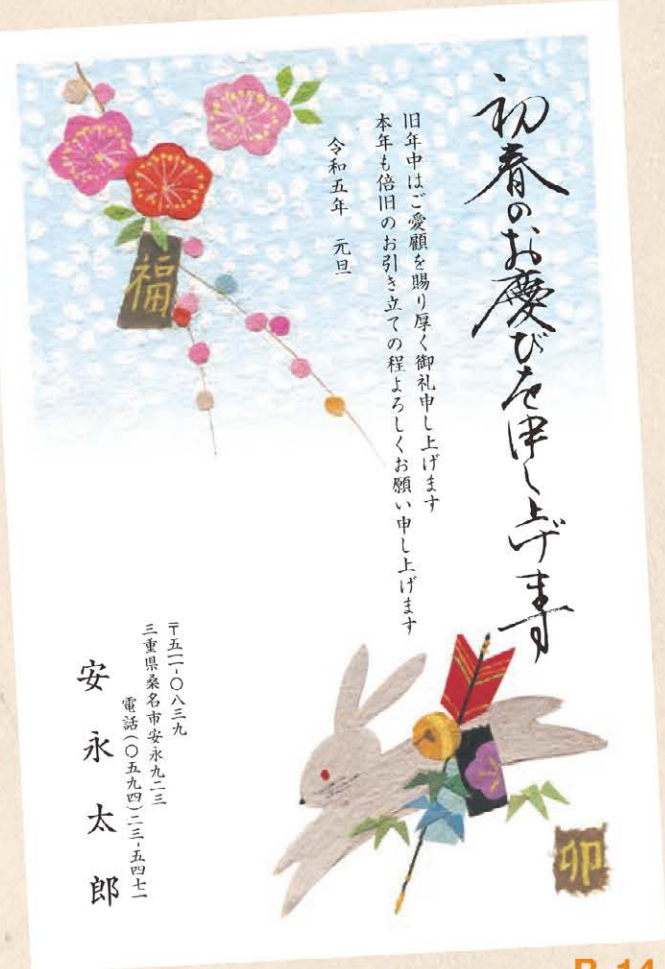 初春のお慶びを申し上げます
旧年中はご愛顧を賜り厚く御礼申し上げます
本年も倍旧のお引き立ての程よろしくお願い申し上げます
令和五年　元旦
福
〒五一一-〇八三九
三重県桑名市安永九二三
電話(〇五九四)二三-五四七一
安永太郎
卯